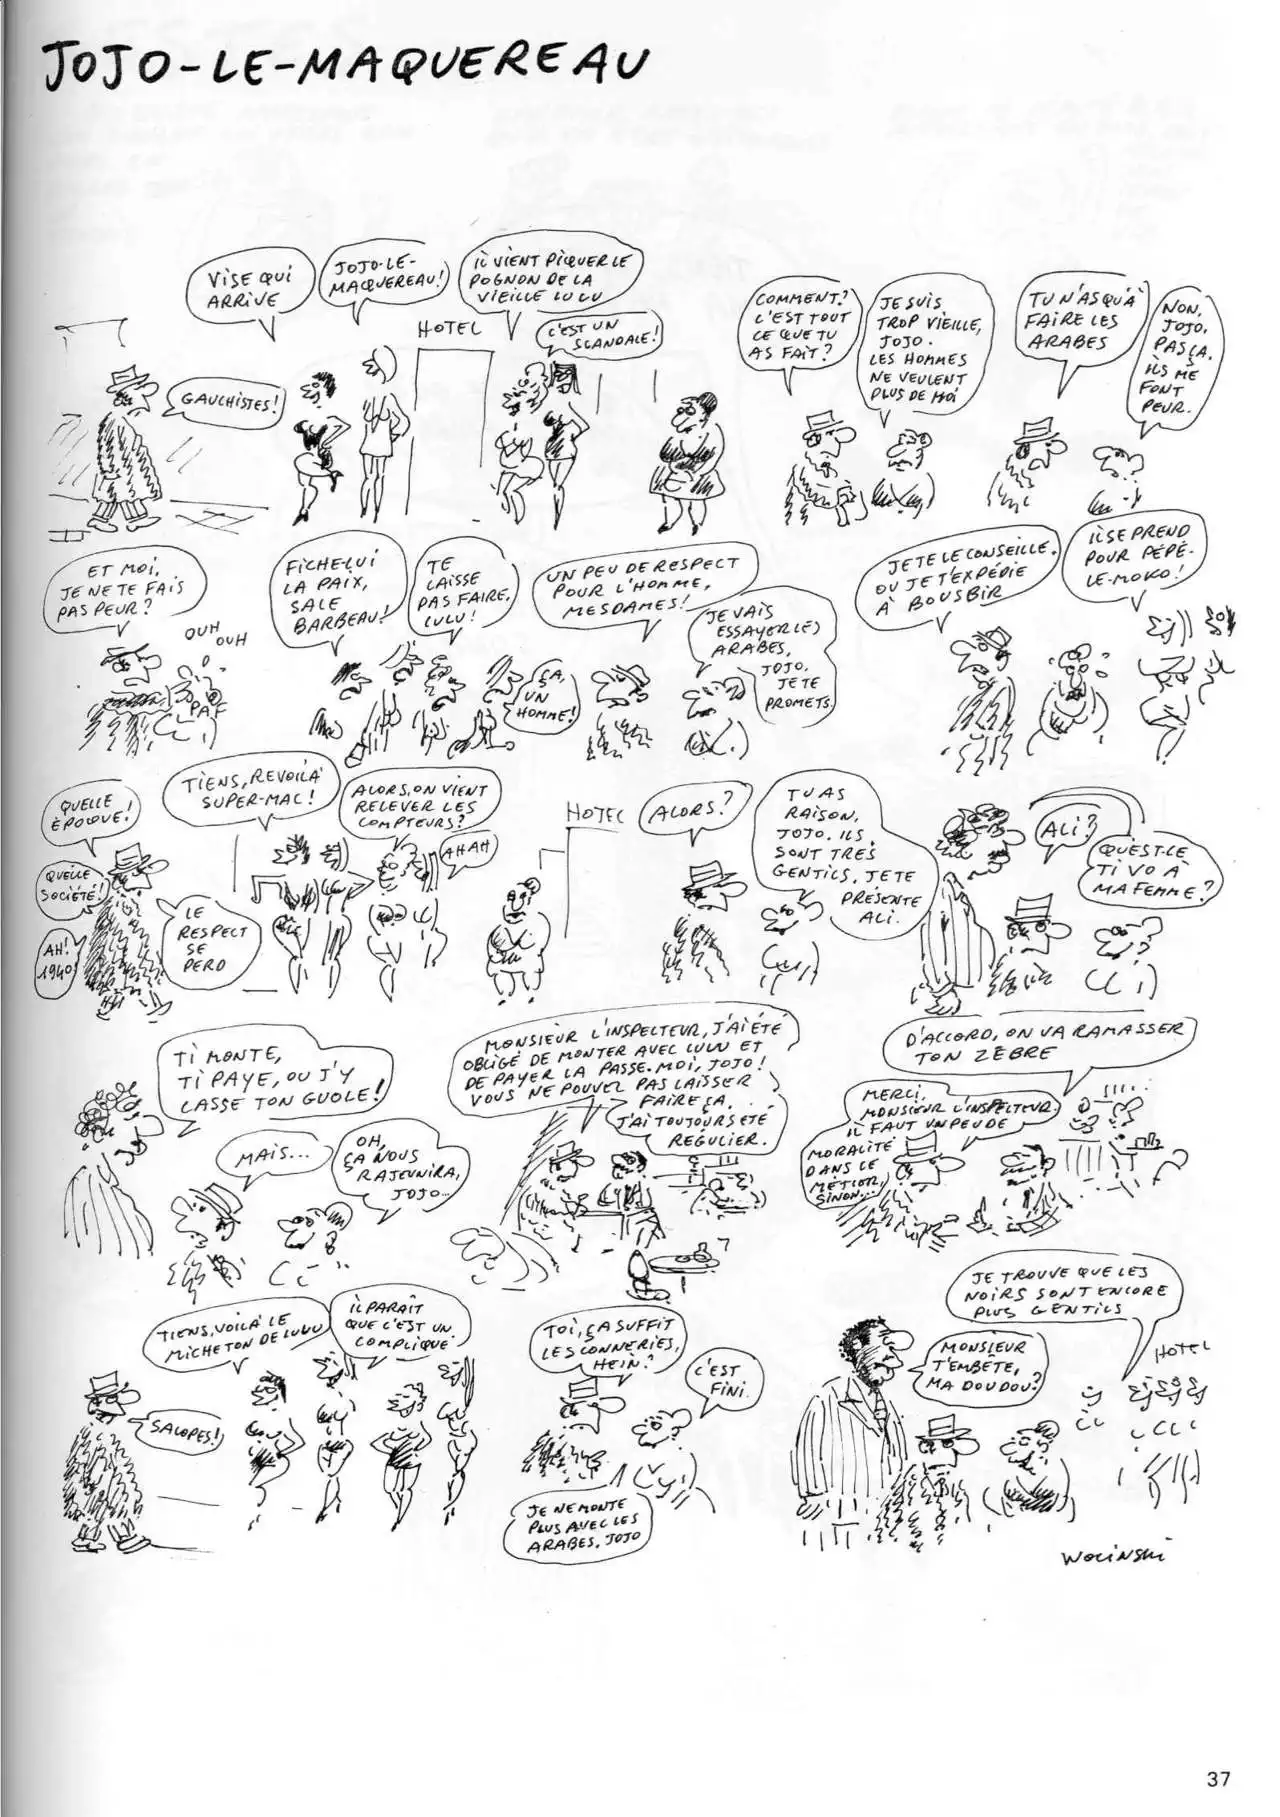 JOJO-LE-MAQUEREAU
VISE QUI
ARRIVE
JOJO-LE-
MAQUEREAU!
IL VIENT PIQUER LE
POGNON DE LA
VIEILLE LULU
GAUCHISTES!
HOTEL
C'EST UN
SCANDALE!
COMMENT?
C'EST TOUT
CE QUE TU
AS FAIT?
JE SUIS
TROP VIEILLE,
JOJO.
LES HOMMES
NE VEULENT
PLUS DE MOI
TU N'AS QU'À
FAIRE LES
ARABES
NON,
JOJO,
PAS ÇA.
ILS ME
FONT
PEUR.
ET MOI,
JE NE TE FAIS
PAS PEUR?
OUH
OUH
PAF
FICHE-LUI
LA PAIX,
SALE
BARBEAU!
TE
LAISSE
PAS FAIRE,
LULU!
ÇA,
UN
HOMME!
UN PEU DE RESPECT
POUR L'HOMME,
MESDAMES!
JE VAIS
ESSAYER LES
ARABES,
JOJO.
JE TE
PROMETS.
JE TE LE CONSEILLE.
OU JE T'EXPÉDIE
À BOUSBIR
IL SE PREND
POUR PÉPÉ-
LE-MOKO!
QUELLE
ÉPOQUE!
QUELLE
SOCIÉTÉ!
AH!
1940
LE
RESPECT
SE
PERD
TIENS, REVOILÀ
SUPER-MAC!
ALORS, ON VIENT
RELEVER LES
COMPTEURS?
AH AH
HOTEL
ALORS?
TU AS
RAISON,
JOJO. ILS
SONT TRÈS
GENTILS, JE TE
PRÉSENTE
ALI.
ALI?
QU'EST-CE
TI VO À
MA FEMME?
TI MONTE,
TI PAYE, OU J'Y
CASSE TON GUOLE!
MAIS...
OH,
ÇA NOUS
RAJEUNIRA,
JOJO...
MONSIEUR L'INSPECTEUR, J'AI ÉTÉ
OBLIGÉ DE MONTER AVEC LULU ET
DE PAYER LA PASSE. MOI, JOJO!
VOUS NE POUVEZ PAS LAISSER
FAIRE ÇA.
J'AI TOUJOURS ÉTÉ
REGULIER.
D'ACCORD, ON VA RAMASSER
TON ZÈBRE
MERCI,
MONSIEUR L'INSPECTEUR.
IL FAUT UN PEU DE
MORALITÉ
DANS LE
MÉTIER,
SINON...
SALOPES!
TIENS, VOILÀ LE
MICHETON DE LULU
IL PARAÎT
QUE C'EST UN
COMPLIQUÉ.
TOI, ÇA SUFFIT
LES CONNERIES,
HEIN?
C'EST
FINI.
JE NE MONTE
PLUS AVEC LES
ARABES, JOJO
JE TROUVE QUE LES
NOIRS SONT ENCORE
PLUS GENTILS
MONSIEUR
T'EMBÊTE,
MA DOUDOU?
HOTEL
WOLINSKI
37